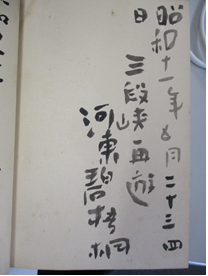 昭和十一年五月二十三四
日 三段峡再遊
河東碧梧桐